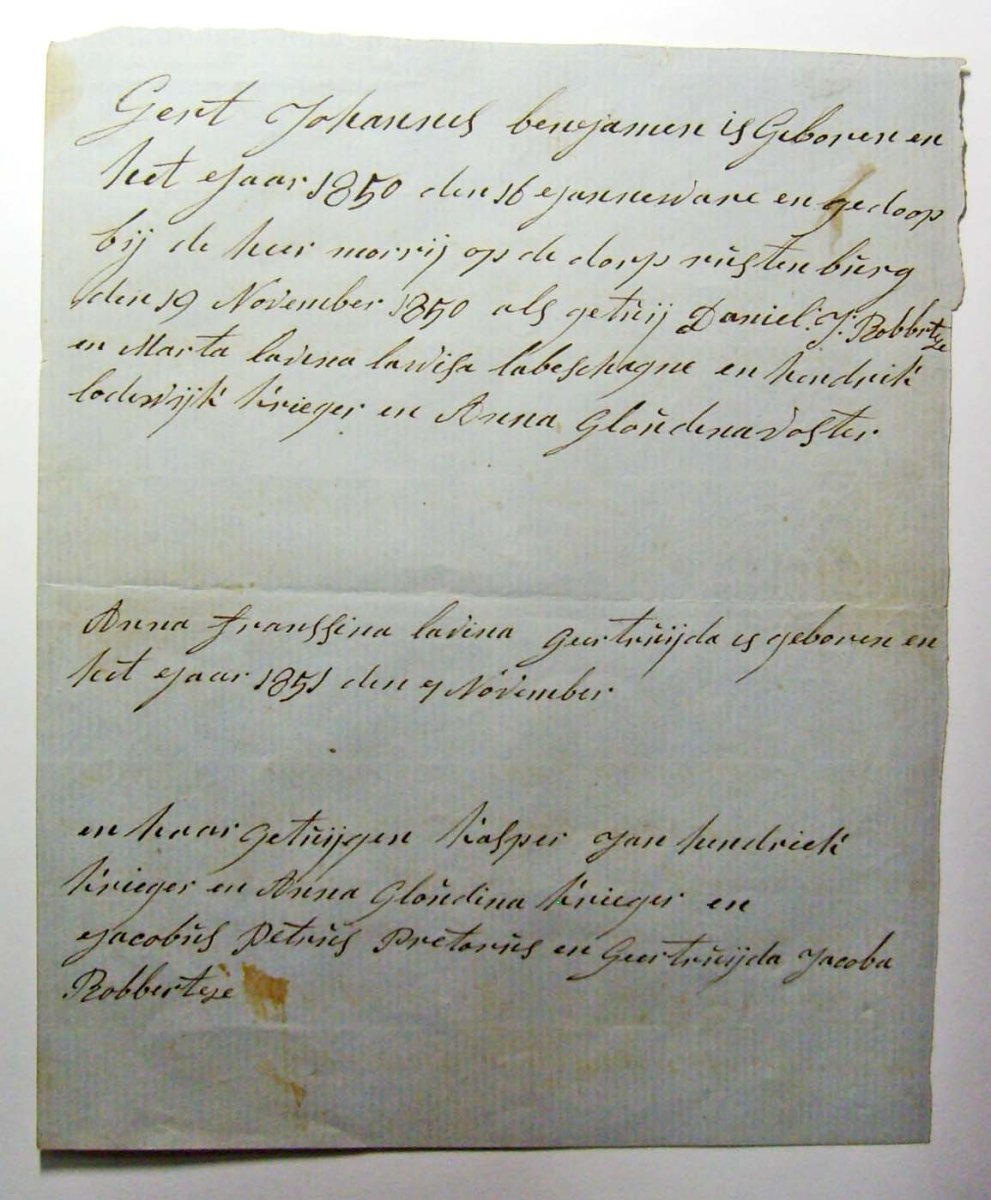 Gert Johannes benejamen is Geboren en
het ejaar 1850 den 16 ejanneware en gedoop
bij de heer morrij op de dorp rŭstenbŭrg
den 19 November 1850 als getŭij Daniel. J. Robbrtze
en Marta lavina lawisa labeschagne en hendrik
lodewijk Krieger en Anna Gloŭdena voster
Anna franssina lavina geertrŭijda is geboren en
het ejaar 1851 den 9 November
en haar getŭijgen Kasper Jan hendriek
Krieger en Anna Gloŭdina Krieger en
ejacobŭs Petrŭs Pretorŭs en Geertrŭijda Jacoba
Robberteze